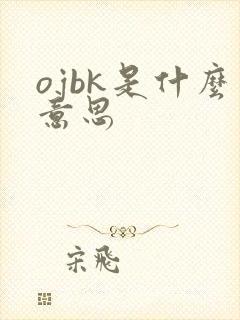 ojbk是什麽
意思
宋飛